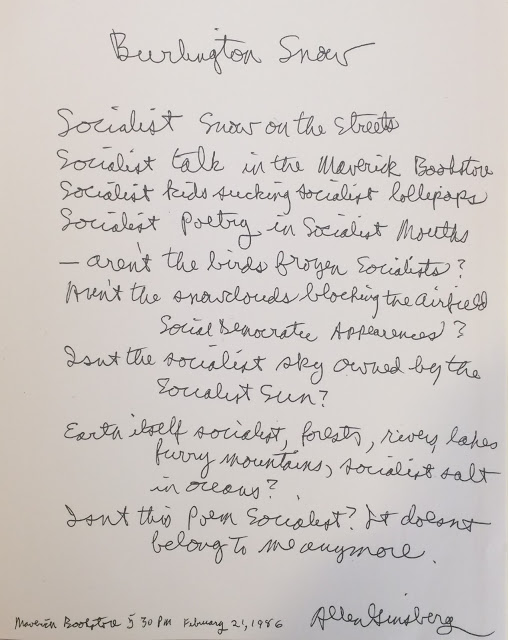 Burlington Snow
Socialist snow on the streets
Socialist talk in the Maverick Bookstore
Socialist kids sucking socialist lollipops
Socialist poetry in Socialist Mouths
— aren't the birds frozen Socialists?
Aren't the snowclouds blocking the airfield
Social Democratic Appearances?
Isnt the socialist sky owned by the
Socialist Sun?
Earth itself socialist, forests, rivers, lakes
furry mountains, socialist salt
in oceans?
Isnt this Poem Socialist? It doesnt
belong to me anymore.
Maverick Bookstore 5 30 PM February 21, 1986
Allen Ginsberg